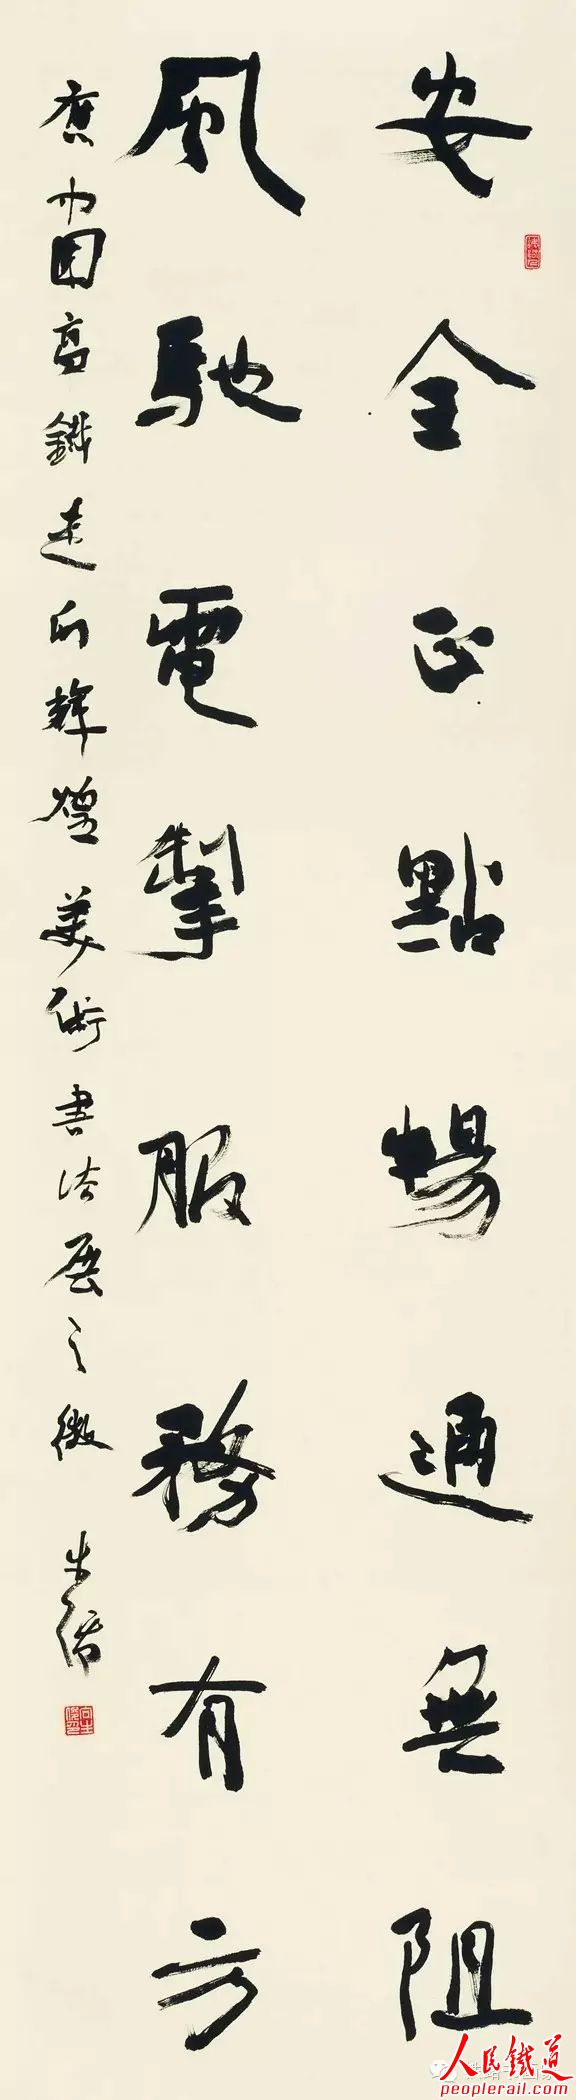 安全正點暢通無阻
風馳電掣服務有方
應中國高鐵走向輝煌美術書法展之徵
人民鐵道
peoplerail.com